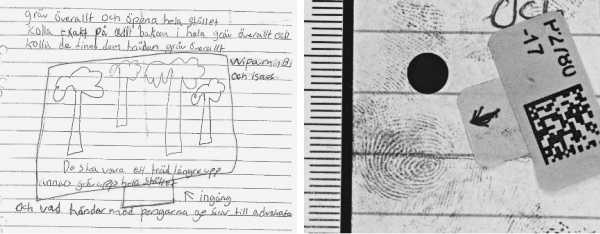 gräv överallt och öppna hela stället
kolla exakt på allt bakom i hela gräv överallt och
kolla de finns dom träden gräv överallt
och
De ska vara ett träd längre upp
innan gräv upp hela stället
ingång
och vad händer med pengarna ge svar till
och
-17